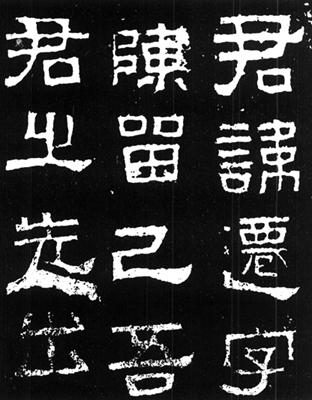 君諱遷字
陳留己吾
君之先出